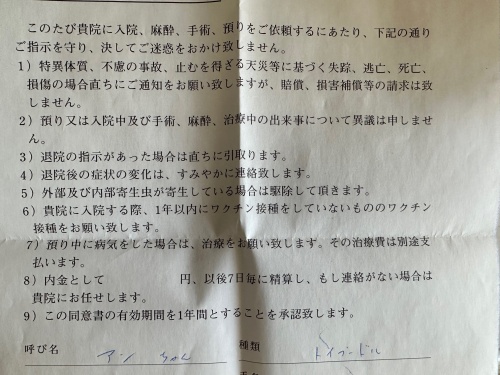 このたび貴院に入院、麻酔、手術、預りをご依頼するにあたり、下記の通り
ご指示を守り、決してご迷惑をおかけ致しません。
1）特異体質、不慮の事故、止むを得ざる天災等に基づく失踪、逃亡、死亡、
損傷の場合直ちにご通知をお願い致しますが、賠償、損害補償等の請求は致
しません。
2）預り又は入院中及び手術、麻酔、治療中の出来事について異議は申しませ
ん。
3）退院の指示があった場合は直ちに引取ります。
4）退院後の症状の変化は、すみやかに連絡致します。
5）外部及び内部寄生虫が寄生している場合は駆除して頂きます。
6）貴院に入院する際、1年以内にワクチン接種をしていないもののワクチン
接種をお願い致します。
7）預り中に病気をした場合は、治療をお願い致します。その治療費は別途支
払います。
8）内金として 円、以後7日毎に精算し、もし連絡がない場合は
貴院にお任せします。
9）この同意書の有効期間を1年間とすることを承認致します。
呼び名 アン ちゃん 種類 トイプードル